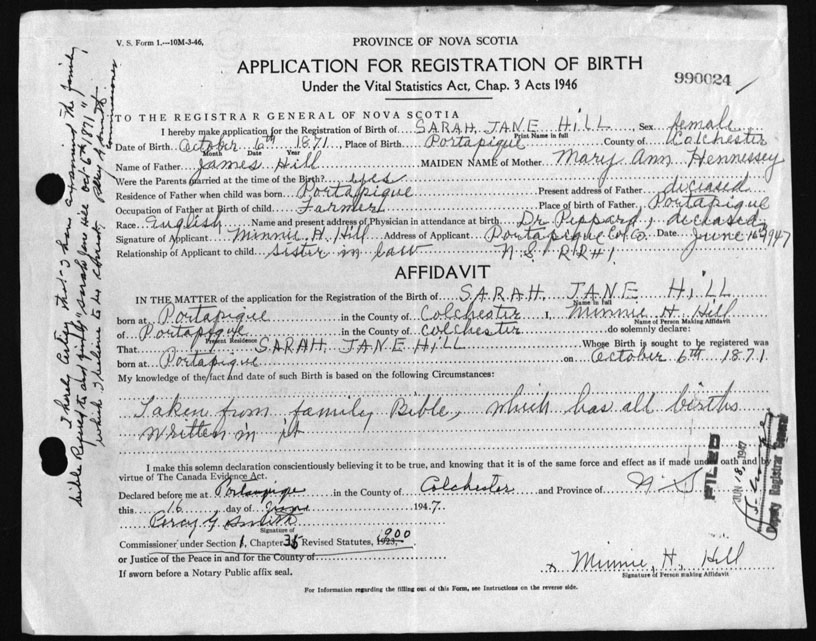 V. S. Form 1.---10M-3-46,
PROVINCE OF NOVA SCOTIA
APPLICATION FOR REGISTRATION OF BIRTH
Under the Vital Statistics Act, Chap. 3 Acts 1946
990024
TO THE REGISTRAR GENERAL OF NOVA SCOTIA
I hereby make application for the Registration of Birth of SARAH, JANE HILL, Sex female
Print Name in full
Date of Birth October 6th 1871 Place of Birth Portapique County of Colchester
Month Date Year
Name of Father James Hill MAIDEN NAME of Mother Mary Ann Hennessey
Were the Parents married at the time of the Birth? yes
Residence of Father when child was born Portapique Present address of Father diceased
Occupation of Father at Birth of child Farmer Place of birth of Father Portapique
Race English Name and present address of Physician in attendance at birth Dr Peppard, deceased
Signature of Applicant Minnie H. Hill Address of Applicant Portapique Col Co. Date June 16 1947
Relationship of Applicant to child sister in law N.S. RR#1
AFFIDAVIT
IN THE MATTER of the application for the Registration of the Birth of SARAH, JANE HILL
Name in full
born at Portapique in the County of Colchester I, Minnie H. Hill
Name of Person Making Affidavit
of Portapique in the County of Colchester do solemnly declare:
Present Residence
That SARAH, JANE HILL Whose Birth is sought to be registered was
born at Portapique on October 6th 1871
My knowledge of the fact and date of such Birth is based on the following Circumstances:
Taken from family Bible, which has all births
written in it
I make this solemn declaration conscientiously believing it to be true, and knowing that it is of the same force and effect as if made under oath and by
virtue of The Canada Evidence Act.
Declared before me at Portapique in the County of Colchester and Province of N.S
this 16 day of June 1947.
Percy Smith
Signature of
Commissioner under Section 1, Chapter 35 Revised Statutes, 1923, 1900
or Justice of the Peace in and for the County of
If sworn before a Notary Public affix seal.
x Minnie, H. Hill
Signature of Person Making Affidavit
For Information regarding the filling out of this Form, see Instructions on the reverse side.
I hereby certify that I have examined the family
bible referred to and finds "Sarah Jane Hill Oct. 6th, 1871"
which I believe to be correct.
Commissioner
FILED
JUN 18 1947
Deputy Registrar General